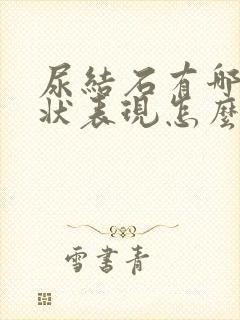 尿結石有哪
狀表現怎麼
雪書青